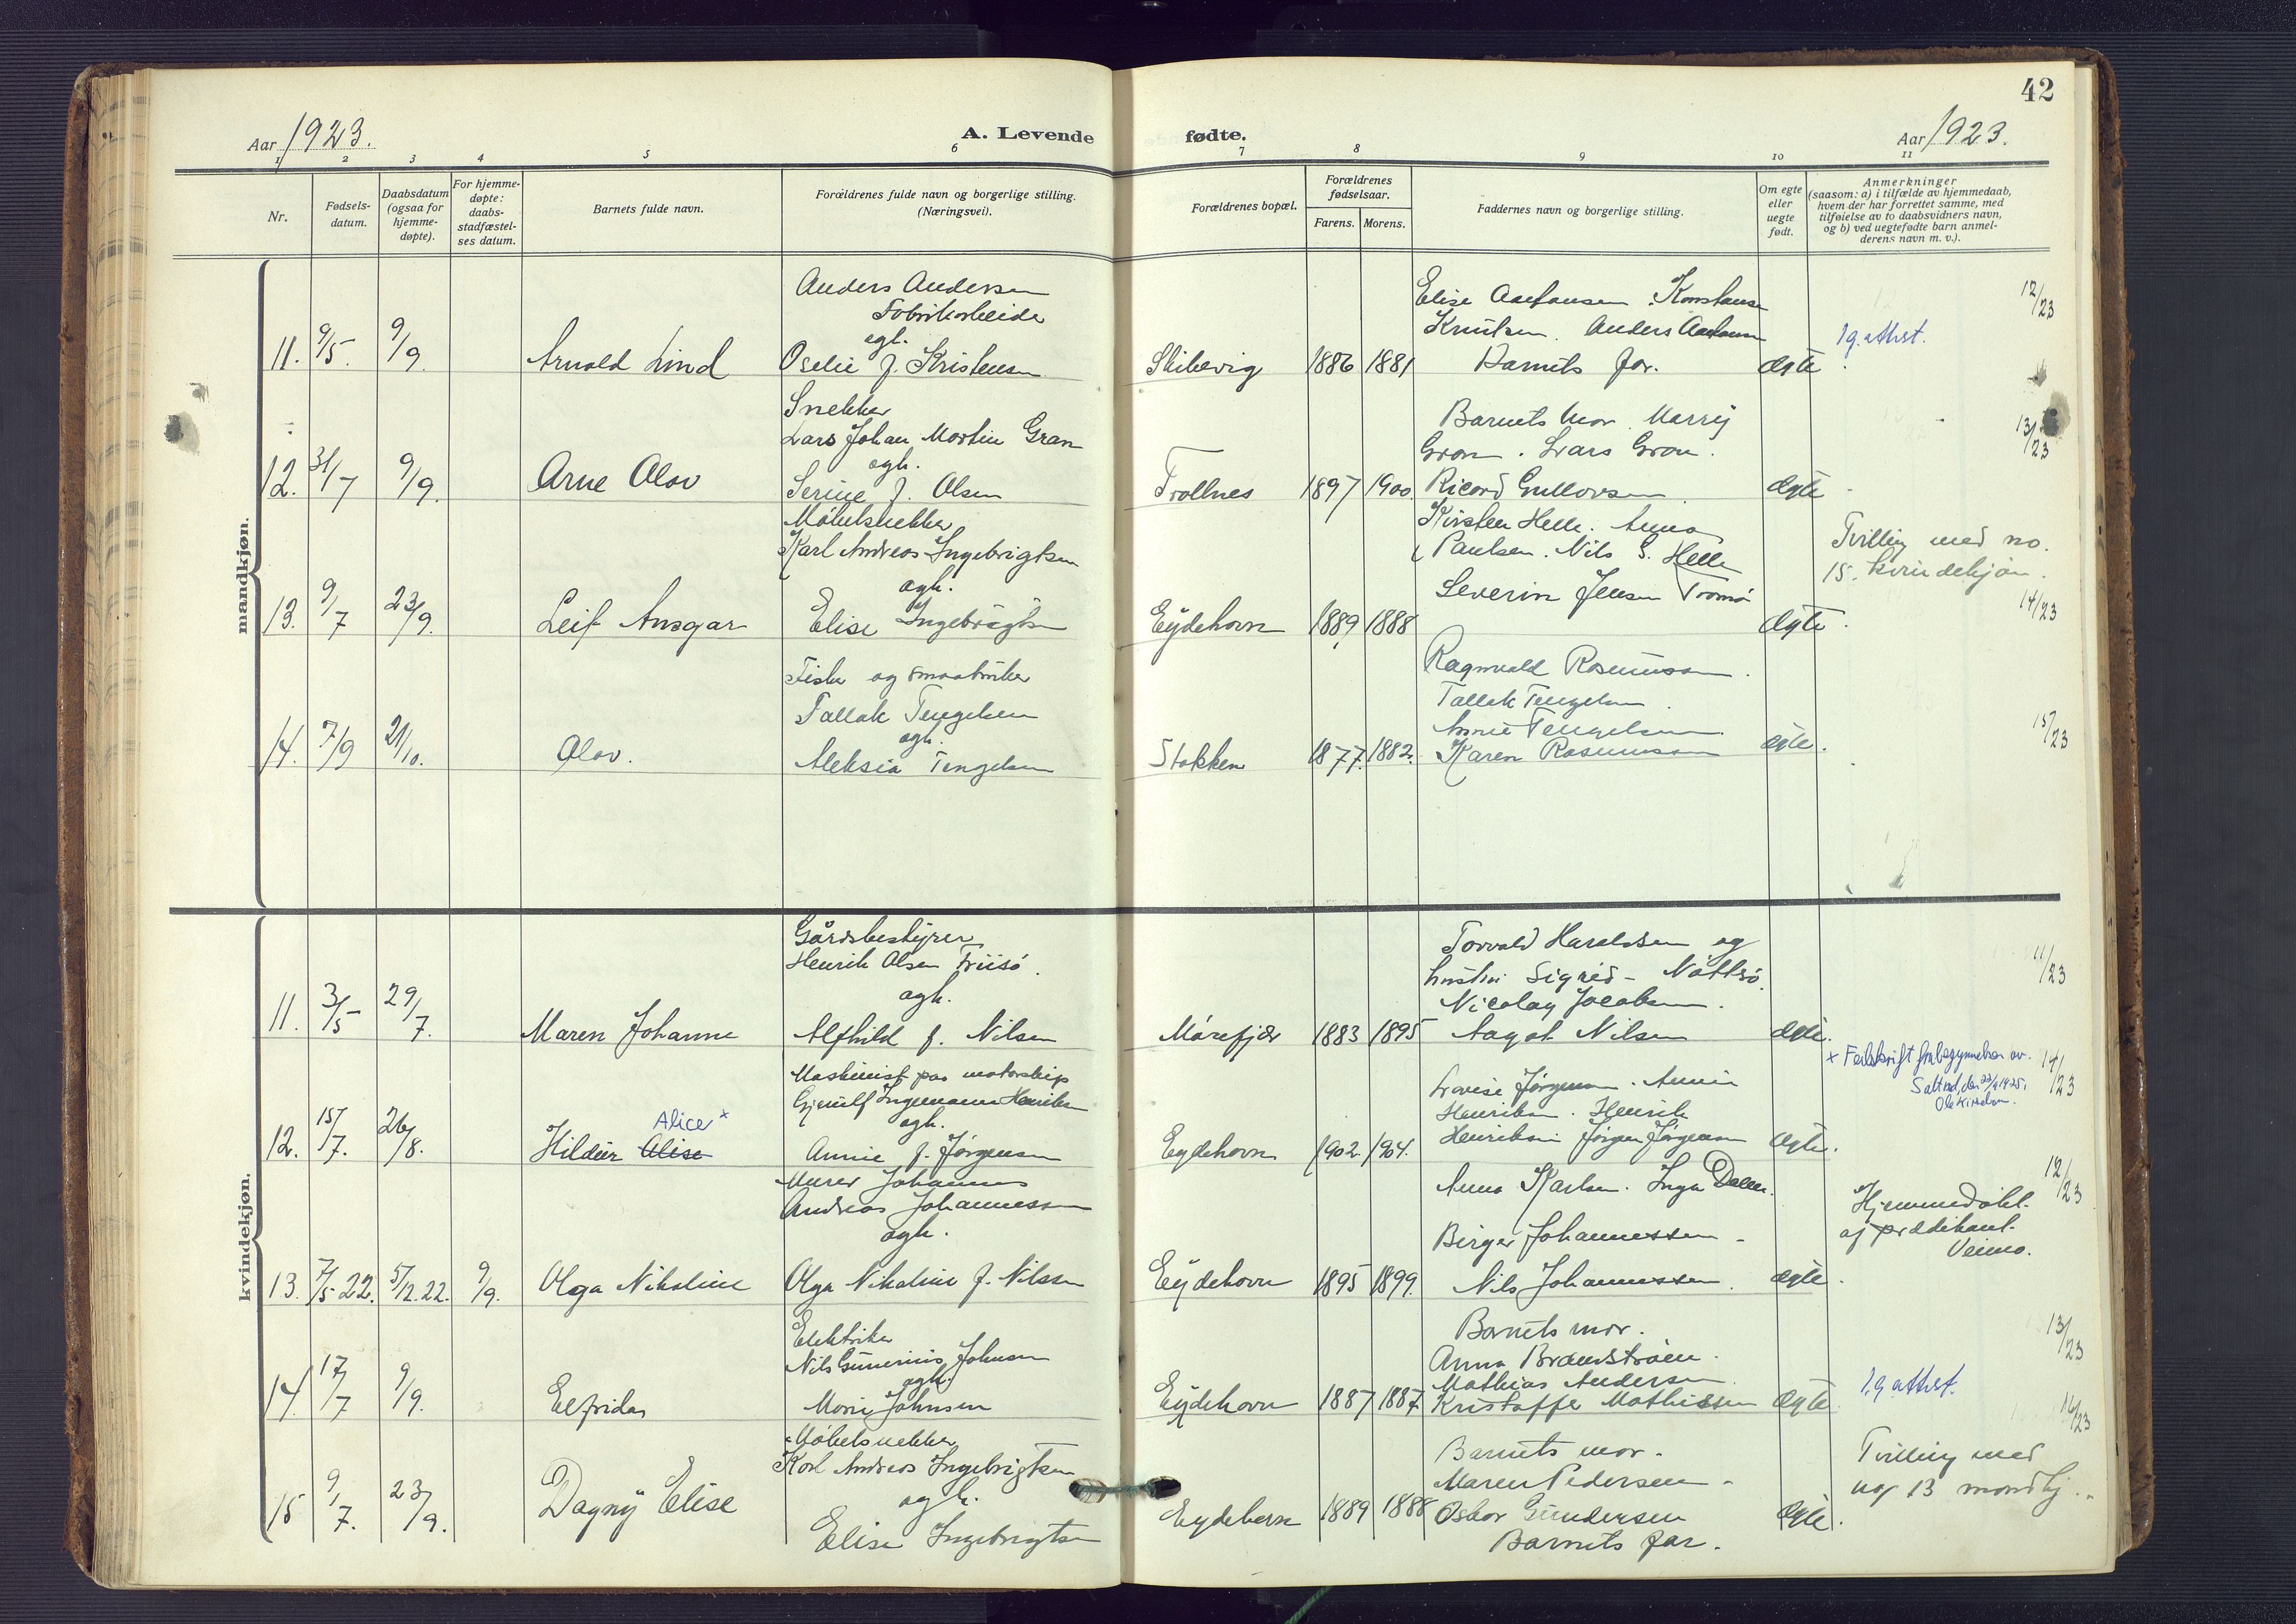 42
Aar 1923.
A. Levende fødte.
Aar 1923.
1 2 3 4 5 6 7 8 9 10 11
Nr.
Fødsels-
datum.
Daabsdatum
(ogsaa for
hjemme-
døpte).
For hjemme-
døpte:
daabs-
stadfæstel-
ses datum.
Barnets fulde navn.
Forældrenes fulde navn og borgerlige stilling.
(Næringsvei).
Forældrenes bopæl.
Forældrenes
fødselsaar.
Farens. Morens.
Faddernes navn og borgerlige stilling.
Om egte
eller
uegte
født.
Anmerkninger
(saasom: a) i tilfælde av hjemmedaab,
hvem der har forrettet samme, med
tilføielse av to daabsvidners navn,
og b) ved uegtefødte barn anmel-
derens navn m. v.).
mandkjøn.
Anders Andersen
Fabrikarbeider
egt.
11. 9/5. 9/9. Arnold Lind
Oselie f. Kristensen
Skibevig 1886 1881
Knutsen. Anders
Barnets far.
ægte
12/23
Snekker
Lars Johan Martin Gran
ogh.
12. 31/7 9/9. Arne Olav
Serine f. Olsen
Trollnes 1897 1900.
Barnets mor. Marry
Gran. Lars Gran.
ægte
13/23
Møbelsnekker
Karl Andreas Ingebrigtsen
ogh.
13. 9/7 23/9. Leif Ansgar
Elise Ingebrigtsen
Eydehavn 1889 1888
Kirsten Helle. Anna
Paulsen. Nils G. Helle
Severin Jensen Tromø
ægte.
Tvilling med no.
15. kvindekjøn.
14/23
Fisker og smaabruker
Tallak Tengelsen
ogh.
14. 7/9 21/10. Olav.
Aleksia Tengelsen
Stokken 1877. 1882.
Ragnvald Rasmussen.
Tallak Tengelsen.
Tengelsen.
Karen Rasmussen
ægte.
15/23
kvindekjøn.
Gårdsbestyrer
Henrik Olsen Friisø.
ogh.
11. 3/5 29/7. Maren Johanne
Alfhild f. Nilsen
Mørefjær 1883 1895
Torvald Haraldsen og
hustru Sigrid - Nattsø.
Nicolay Jacobsen.
Aagot Nilsen
ægte.
11/23
Maskinist paa motorskip
Ingemann Henriksen
ogh.
Alice x
12. 15/7. 26/8. Hildur Alise
Annie f. Jørgensen
Eydehavn 1902. 1904.
Lovise Jørgensen. Annie
Henriksen. Henrik
Henriksen Jørgen Jørgensen
ægte.
x Feilskrift
14/23
Murer Johannes
Andreas Johannessen
ogh.
13. 7/5 22. 5/12.22. 9/9. Olga Nikoline
Olga Nikoline f. Nilssen
Eydehavn 1895 1899.
Anna Karlsen. Inga Dalen.
Birger Johannessen -
Nils Johannessen.
ægte.
12/23
Hjemmedøbt
af prædikant
Veimo.
Elektriker
Nils Gunerius Johnsen
ogh.
14. 17/7 9/9. Elfrida
Marie Johnsen
Eydehavn 1887 1887.
Barnets mor.
Anna Brandstrøm.
Mathias Andersen
Kristoffer Mathissen
ægte
13/23
Møbelsnekker
Karl Andreas Ingebrigtsen
ogh.
15 9/7. 23/9. Dagny Elise
Elise Ingebrigtsen
Eydehavn 1889 1888
Barnets mor -
Maren Pedersen -
Oskar Gundersen
Barnets far.
ægte.
Tvilling med
13 mandkj.